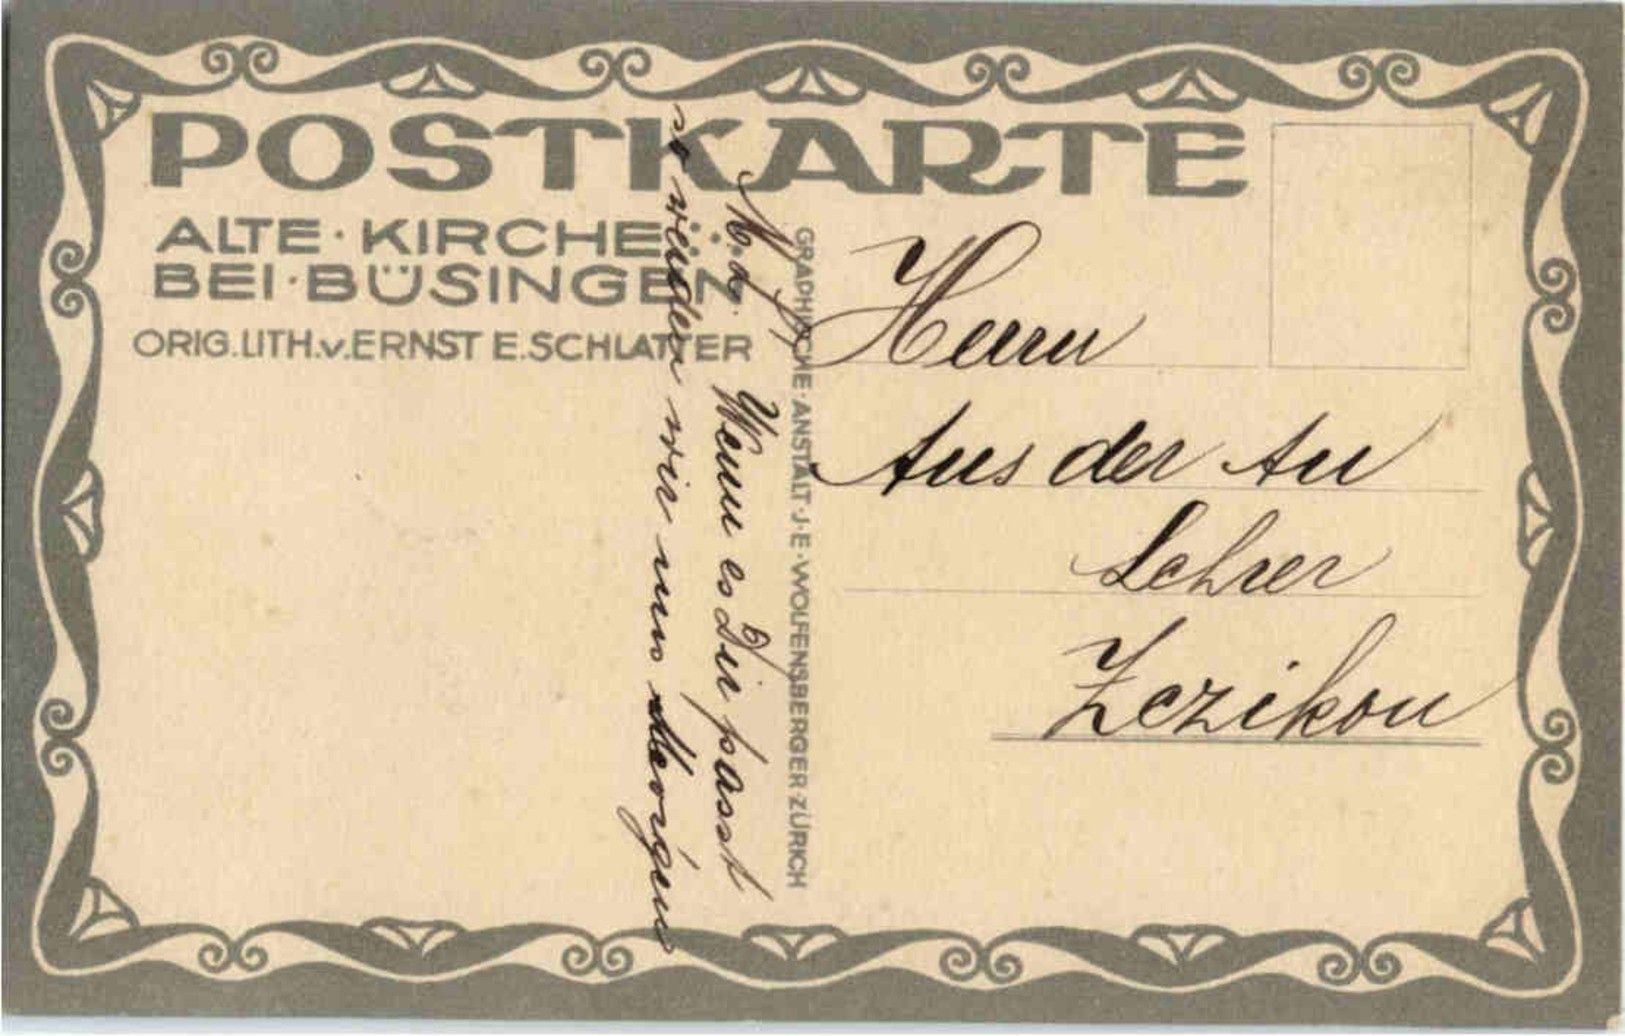 POSTKARTE
ALTE · KIRCHE
BEI · BÜSINGEN
ORIG. LITH. v. ERNST E. SCHLATTER
Wenn es Dir passt
so würden wir uns Morgen
GRAPHISCHE · ANSTALT · J · E · WOLFENSBERGER · ZÜRICH
Herrn
Aus der Au
Lehrer
Zezikon